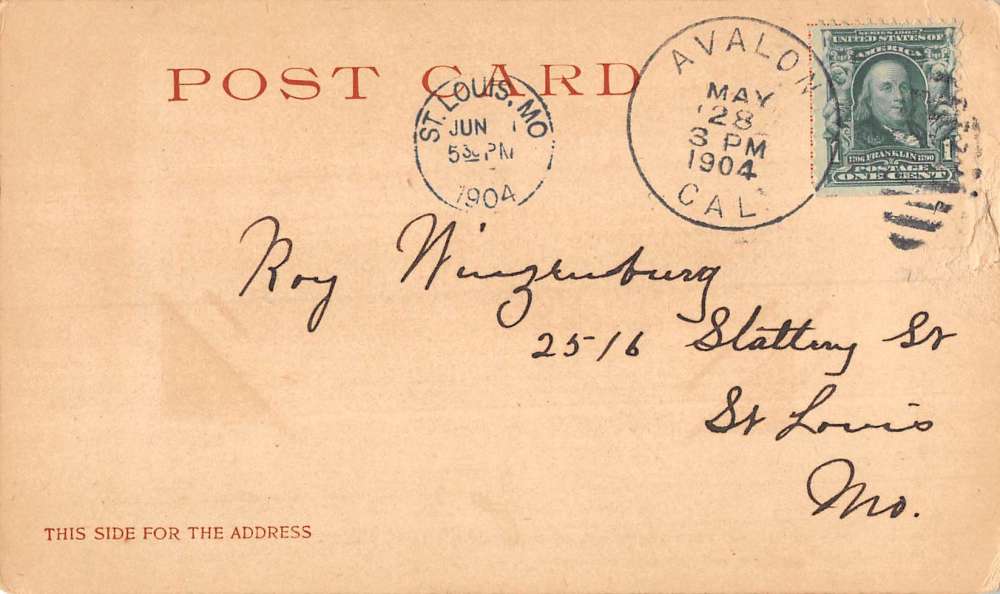 POST CARD
ST. LOUIS, MO
JUN 1
5 30 PM
1904
AVALON
MAY
28
3 PM
1904
CAL.
SERIES 1902
UNITED STATES OF
AMERICA
1706 FRANKLIN 1790
1 POSTAGE 1
ONE CENT
Roy Winzenburg
2516 Slattery St
St Louis
Mo.
THIS SIDE FOR THE ADDRESS